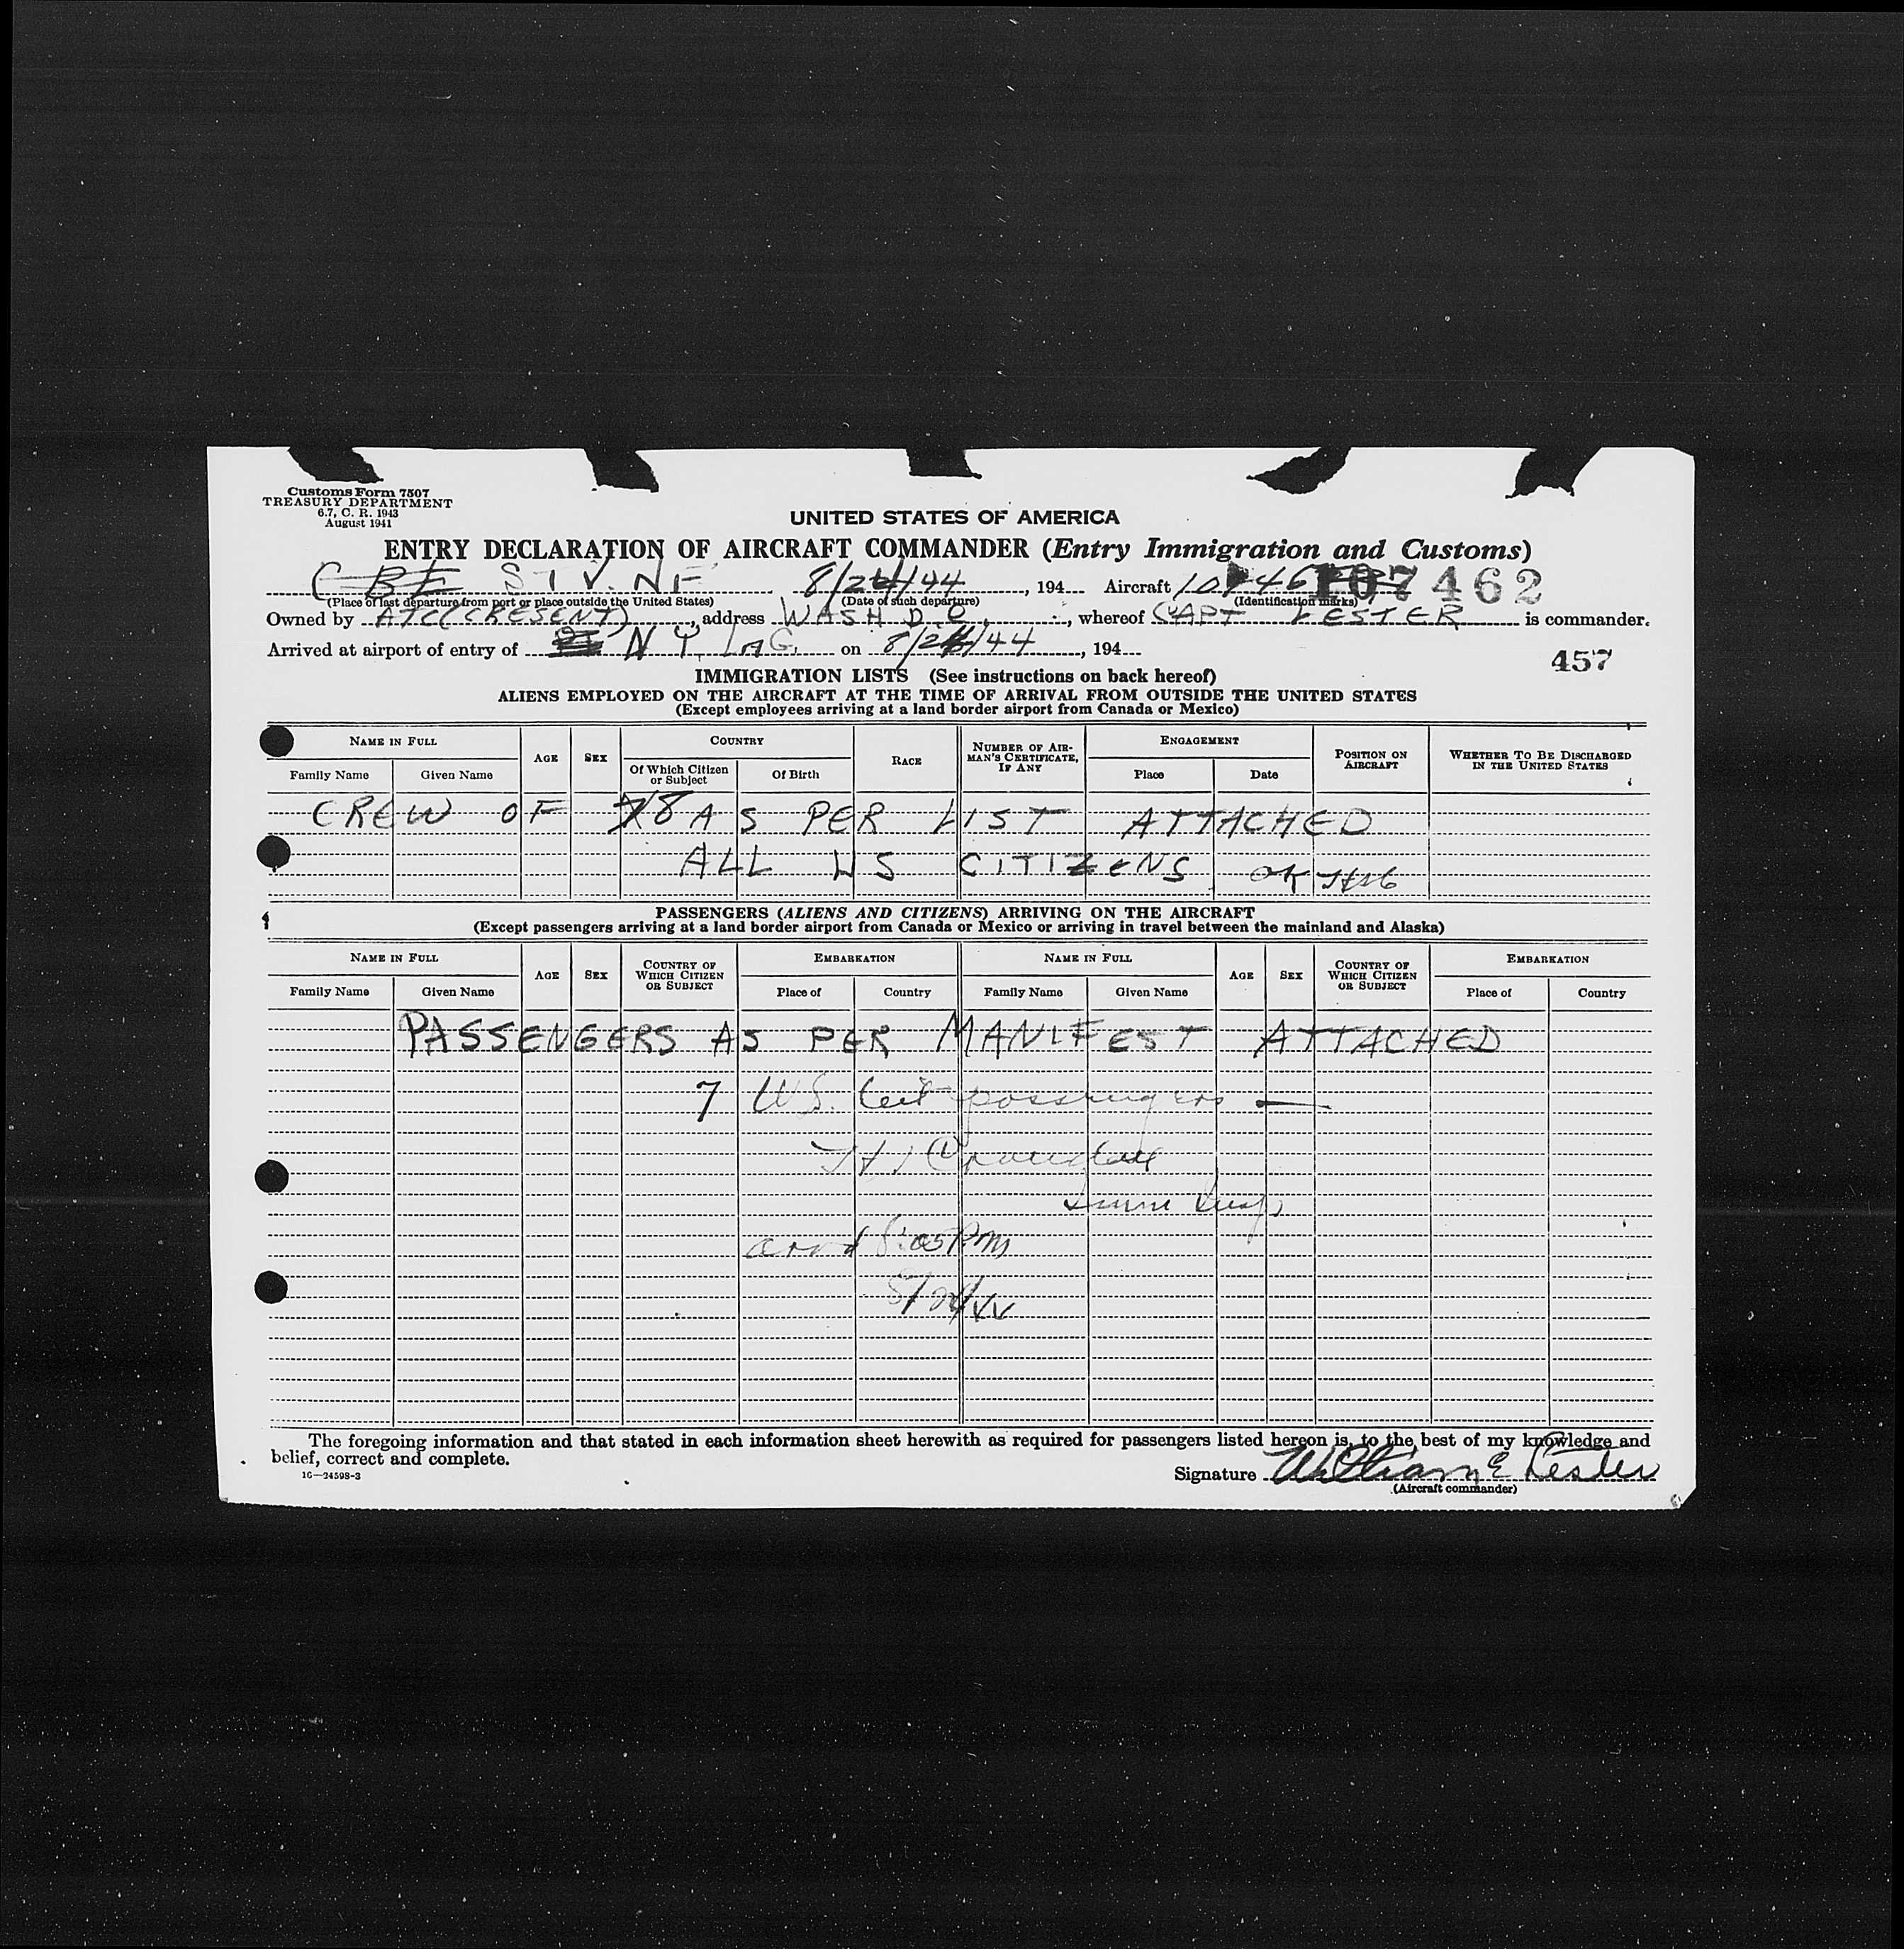 Customs Form 7507
TREASURY DEPARTMENT
6.7, C. R. 1943
August 1941
UNITED STATES OF AMERICA
ENTRY DECLARATION OF AIRCRAFT COMMANDER (Entry Immigration and Customs)
CBE STV. NF 8/24/44, 194 Aircraft 107462
(Place of last departure from port or place outside the United States) (Date of such departure) (Identification marks)
Owned by ATC (CRESENT), address WASH D.C., whereof CAPT LESTER is commander.
Arrived at airport of entry of N Y. LAG. on 8/24/44, 194
457
IMMIGRATION LISTS (See instructions on back hereof)
ALIENS EMPLOYED ON THE AIRCRAFT AT THE TIME OF ARRIVAL FROM OUTSIDE THE UNITED STATES
(Except employees arriving at a land border airport from Canada or Mexico)
NAME IN FULL AGE SEX COUNTRY RACE NUMBER OF AIRMAN'S CERTIFICATE, IF ANY ENGAGEMENT POSITION ON AIRCRAFT WHETHER TO BE DISCHARGED IN THE UNITED STATES
Family Name Given Name Of Which Citizen or Subject Of Birth Place Date
CREW OF 8 AS PER LIST ATTACHED
ALL US CITIZENS OK
PASSENGERS (ALIENS AND CITIZENS) ARRIVING ON THE AIRCRAFT
(Except passengers arriving at a land border airport from Canada or Mexico or arriving in travel between the mainland and Alaska)
NAME IN FULL AGE SEX COUNTRY OF WHICH CITIZEN OR SUBJECT EMBARKATION NAME IN FULL AGE SEX COUNTRY OF WHICH CITIZEN OR SUBJECT EMBARKATION
Family Name Given Name Place of Country Family Name Given Name Place of Country
PASSENGERS AS PER MANIFEST ATTACHED
7 U.S. Cit passengers
Imm Insp
arrvd 8:05 PM
8/24/44
The foregoing information and that stated in each information sheet herewith as required for passengers listed hereon is, to the best of my knowledge and
belief, correct and complete.
16—24598-3
Signature William E Lester
(Aircraft commander)